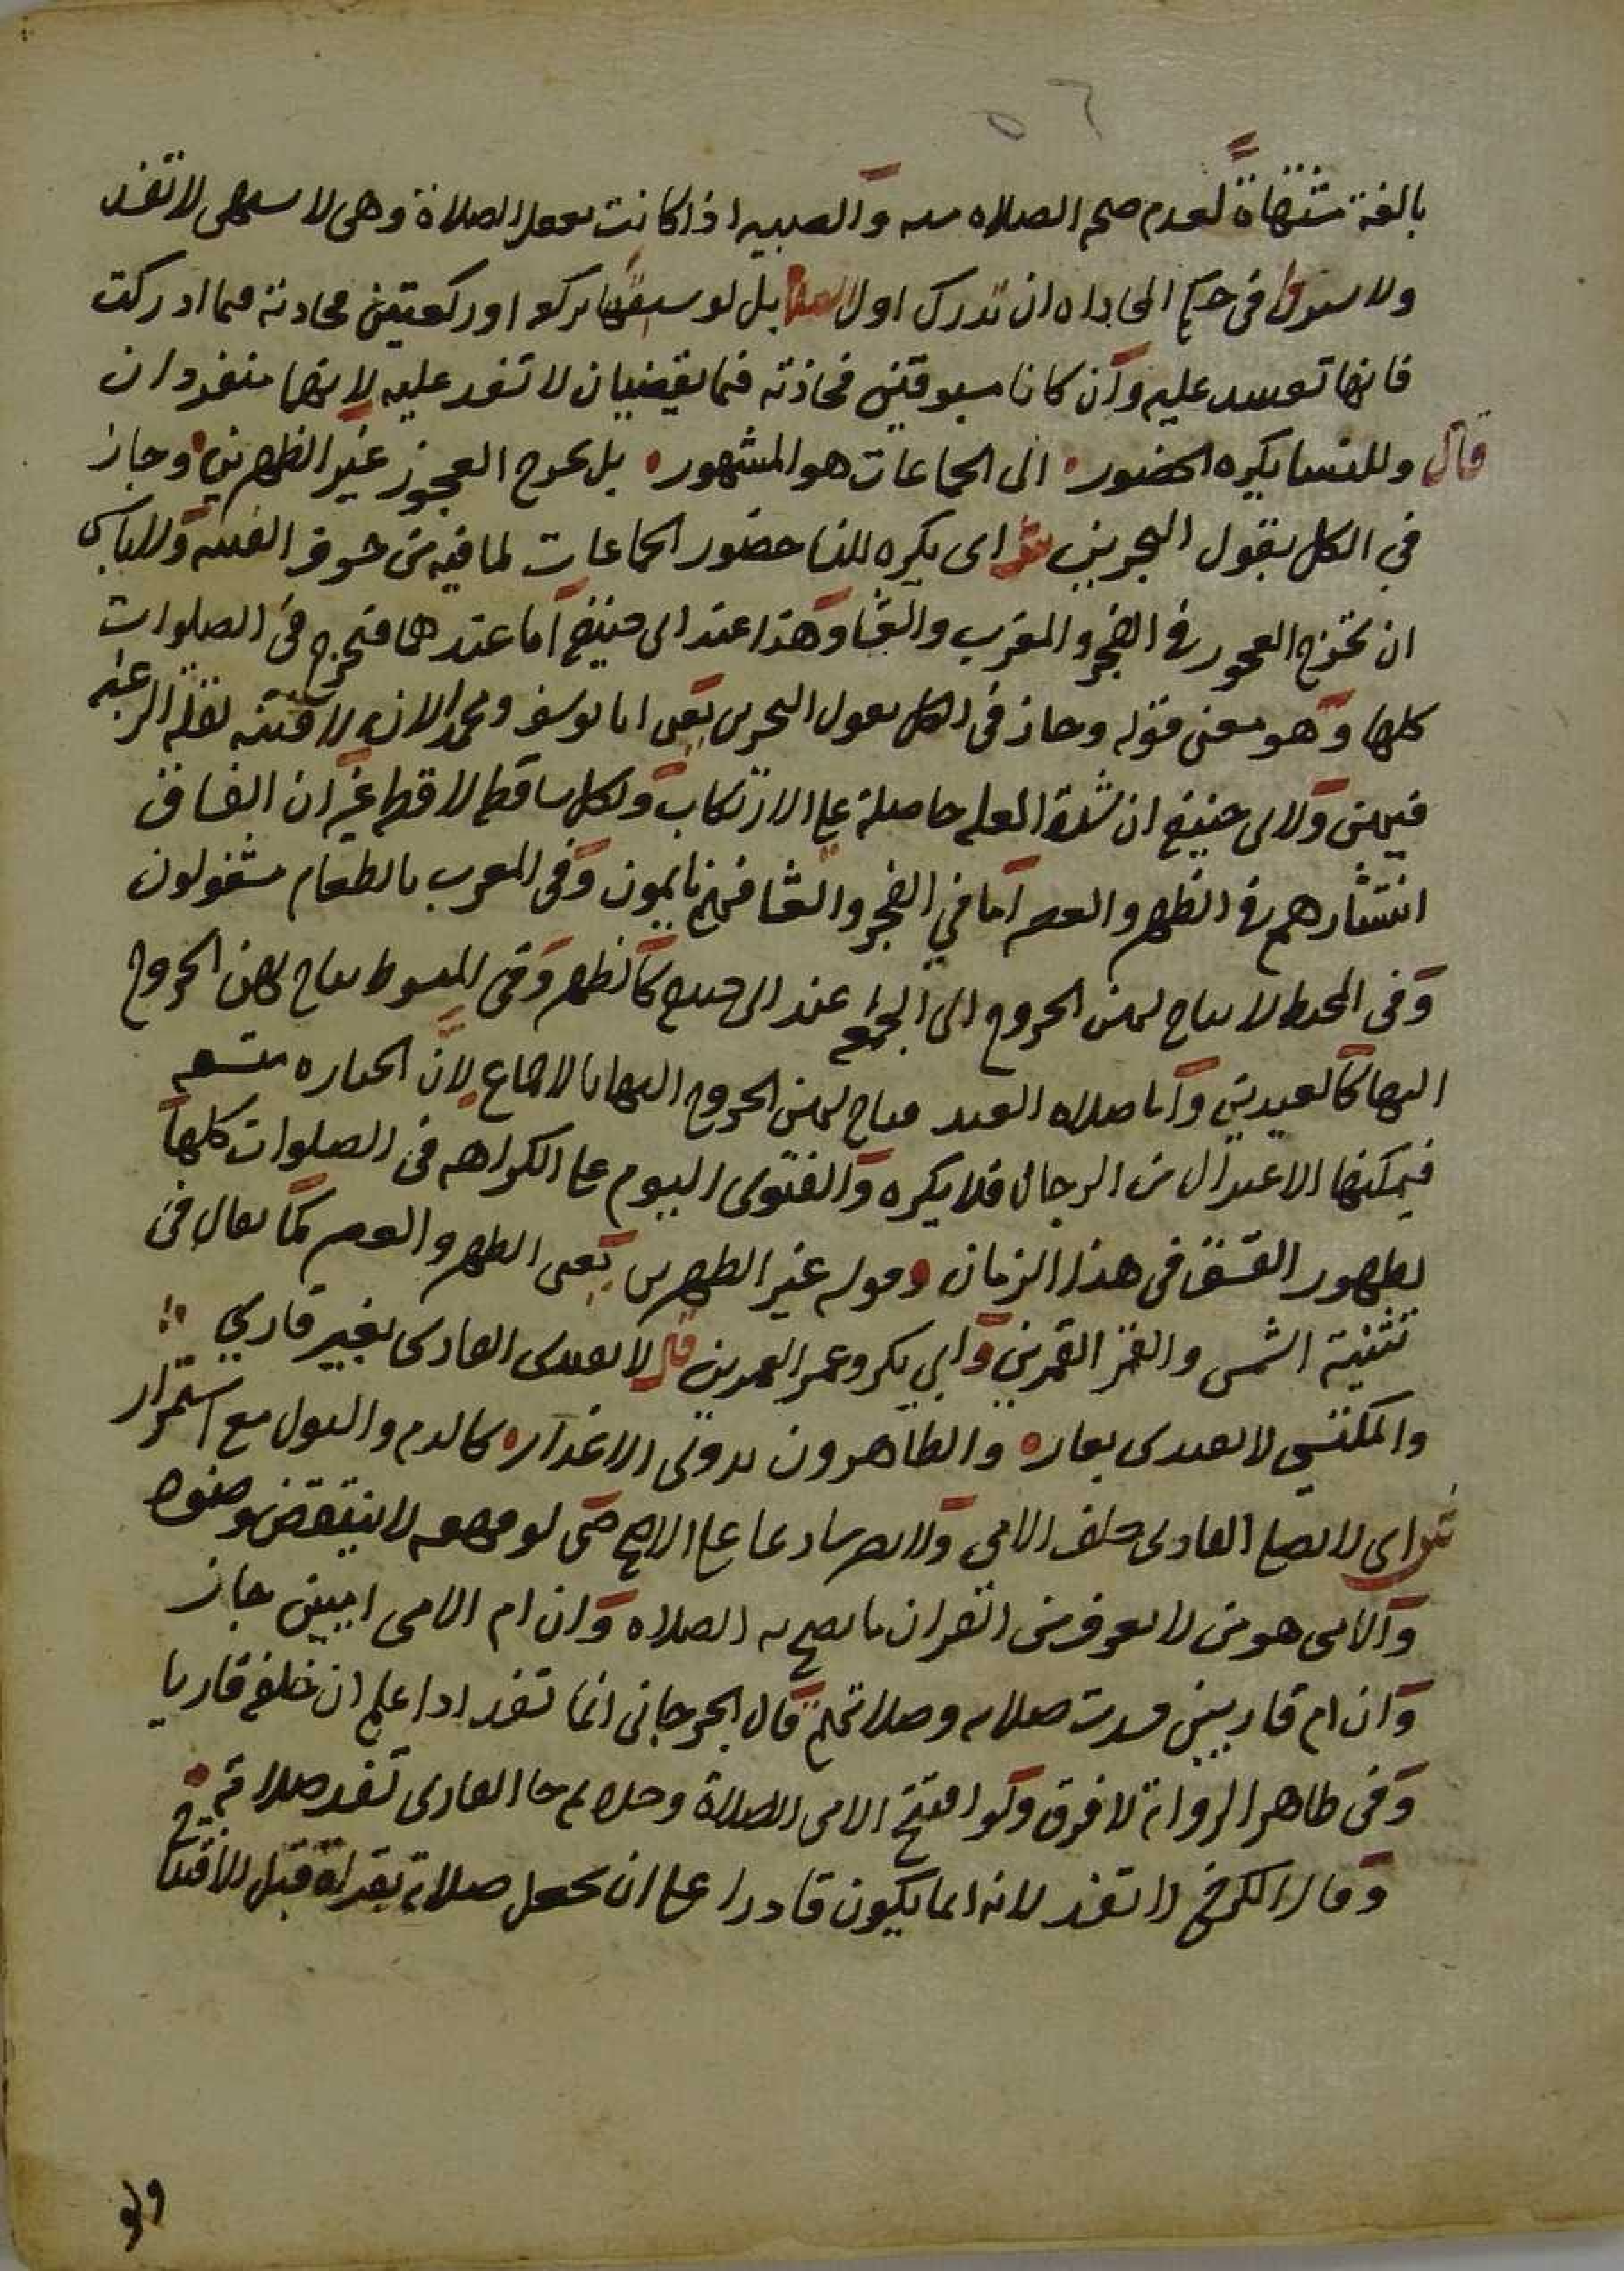 بالغة مشتهاة لعدم صحه الصلاه منه والصبيه اذا كانت تعقل الصلاة وهى لا تشتهى لا تفسد
ولا يشترط فى حكم المحاداه ان تدرك اول الصلاة بل لو سبقها بركعه اوركعتين فحاذته فيما ادركت
فانها تفسد عليه وان كانا مسبوقتين فحاذته فيما يقضيان لا تفسد عليه لانهما منفردان
قال وللنسا يكره الحضور الى الجماعات هو المشهور بل تخرج العجوز غير الظهرين وجاز
في الكل بقول البحرين ش اى يكره للنسا حضور الجماعات لما فيه من خوف الفتنه ولا باس
ان تخرج العجوز فى الفجر والمغرب والعشا وهذا عند ابى حنيفه اما عندهما فتخرج فى الصلوات
كلها وهو معنى قوله وجاز فى الكل بقول البحرين يعنى ابا يوسف ومحمد لانه لا فتنه لقلة الرغبه
فيهن ولابى حنيفه ان شدة الغلمه حاصلة على الارتكاب ولكل ساقطه لاقطه غير ان الفساق
انتشارهم فى الظهر والعصر اما في الفجر والعشا فهم نايمون وفى المغرب بالطعام مشغولون
وفى المحيط لا يباح لهن الخروج الى الجمعه عند ابى حنيفه كالظهر وفى المبسوط يباح لهن الخروج
اليها كالعيدين واما صلاه العيد فيباح لهن الخروج اليها بالاجماع لان الجبانه متسعه
فيمكنها الاعتزال عن الرجال فلا يكره والفتوى اليوم على الكراهه فى الصلوات كلها
لظهور الفسق فى هذا الزمان وقوله غير الظهرين يعنى الظهر والعصر كما يقال فى
تثنية الشمس والقمر القمرين وابي بكر وعمر العمرين قال لا يقتدى القارى بغير قاري
والمكتسي لا يقتدى بعاره والطاهرون بذوى الاعذار كالدم والبول مع استمرار
ش اى لا يصلى القارى خلف الامى ولا يصير شارعا على الاصح حتى لو قهقهه لا ينتقض وضوه
والامى هو من لا يعرف من القران ما يصح به الصلاه وان ام الامى اميين جاز
وان ام قاريين فسدت صلاته وصلاتهم قال الجرجانى انما تفسد اذا علم ان خلفه قاريا
وفى ظاهر الرواية لا فرق ولو افتتح الامى الصلاة وحده ثم جا القارى تفسد صلاته
وقال الكرخى لا تفسد لانه انما يكون قادرا على ان يجعل صلاته بقراة قبل الافتتاح